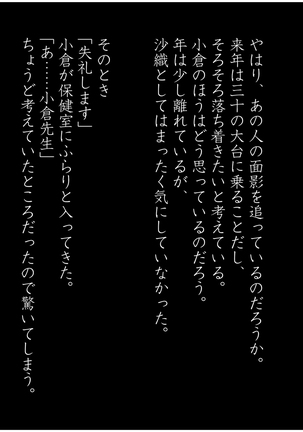 やはり、あの人の面影を追っているのだろうか。
来年は三十の大台に乗ることだし、
そろそろ落ち着きたいと考えている。
小倉のほうはどう思っているのだろう。
年は少し離れているが、
沙織としてはまったく気にしていなかった。
そのとき
「失礼します」
小倉が保健室にふらりと入ってきた。
「あ……小倉先生」
ちょうど考えていたところだったので驚いてしまう。